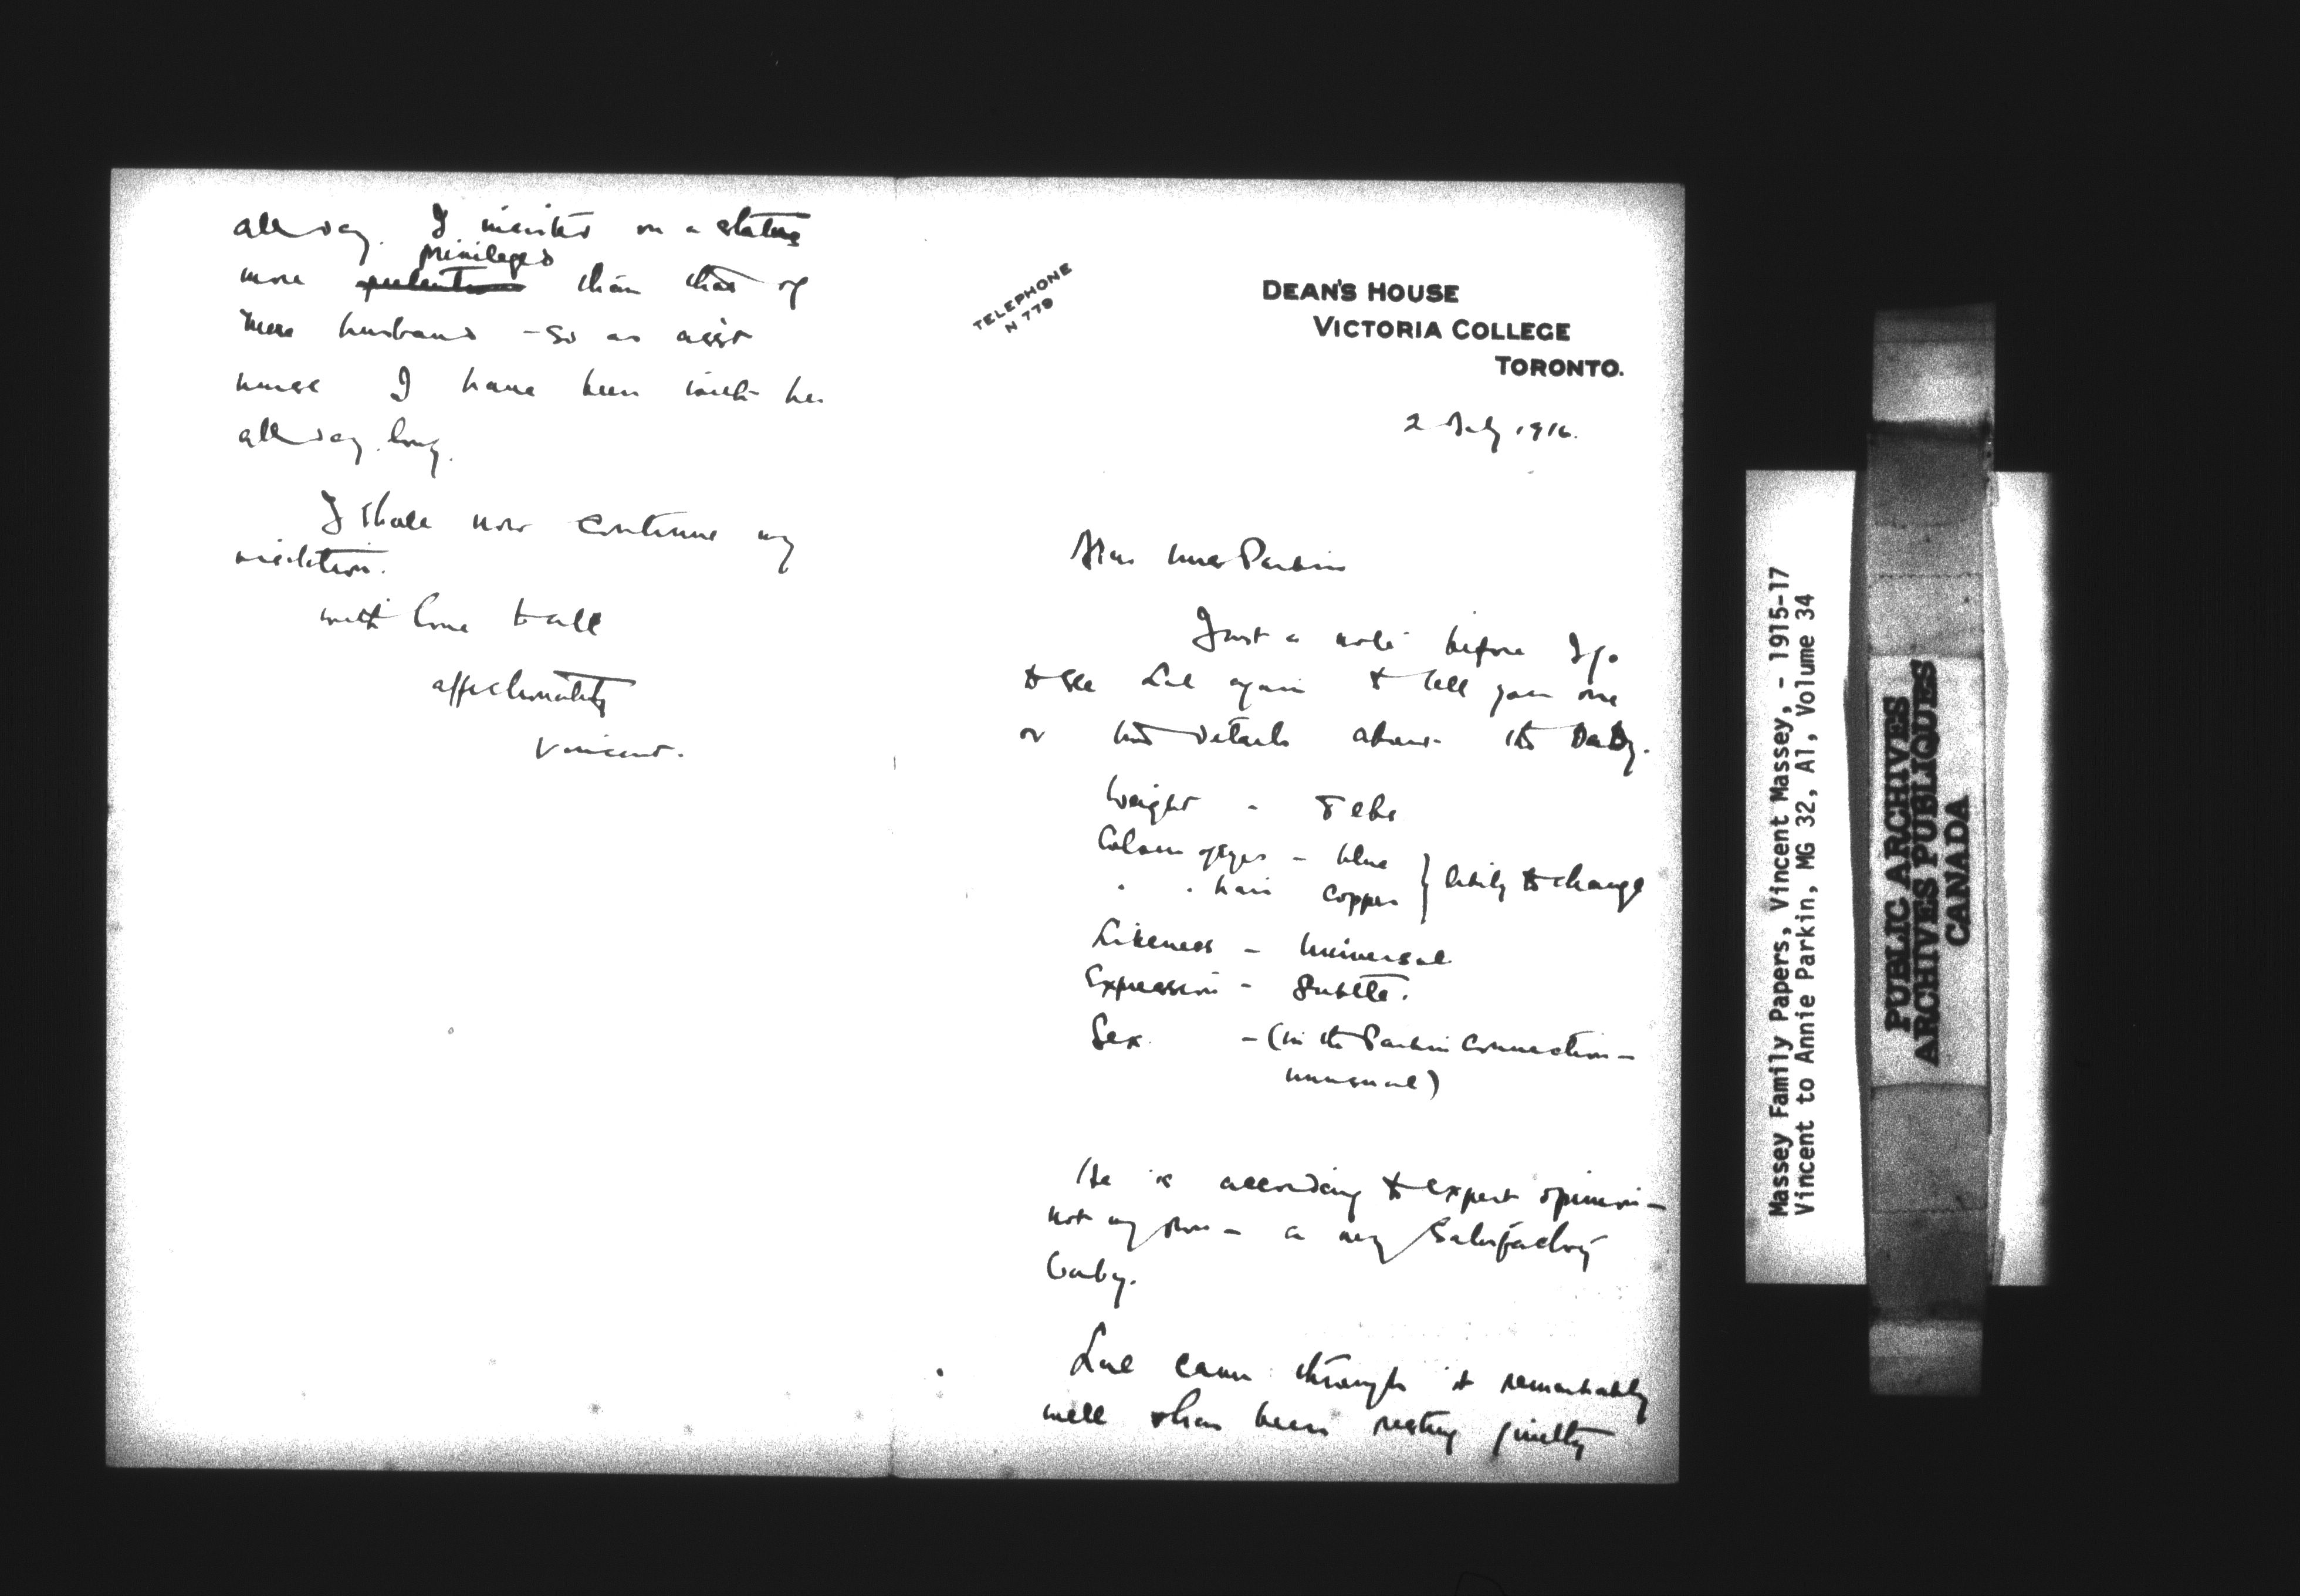 TELEPHONE
N 779
DEAN'S HOUSE
VICTORIA COLLEGE
TORONTO.
2 July 1916.
Mrs Parkin
Just a note before I go
to see Lal again to tell you one
or two details about the Baby.
Weight - 8 lbs
Colour of eyes - blue
" " hair copper } likely to change
Likeness - Universal
Expression - Subtle.
Sex - (in the Parkin Connection -
unusual)
He is according to expert opinion -
not my own - a very satisfactory
baby.
Lal came through it remarkably
well & has been resting quietly
all day. I insisted on a status
more privileged than that of
mere husband - so as asst
nurse I have been with her
all day long.
I shall now continue my
with love to all
affectionately
Vincent.
Massey Family Papers, Vincent Massey, - 1915-17
Vincent to Annie Parkin, MG 32, A1, Volume 34
PUBLIC ARCHIVES
ARCHIVES PUBLIQUES
CANADA